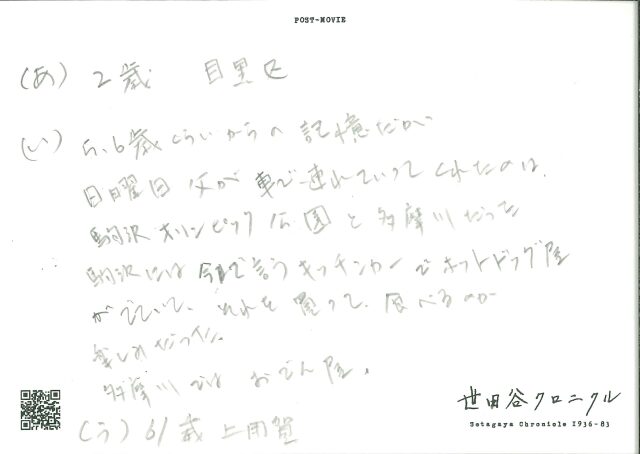 POST-MOVIE
(あ) 2歳 目黒区
(い) 5、6歳くらいからの記憶だが
日曜日 父が車で連れていってくれたのは、
駒沢オリンピック公園と多摩川だった
駒沢には今で言うキッチンカーでホットドッグ屋
がでていて、それを買って、食べるのが
楽しみだった。
多摩川ではおでん屋。
(う) 61歳 上用賀
世田谷クロニクル
Setagaya Chronicle 1936-83